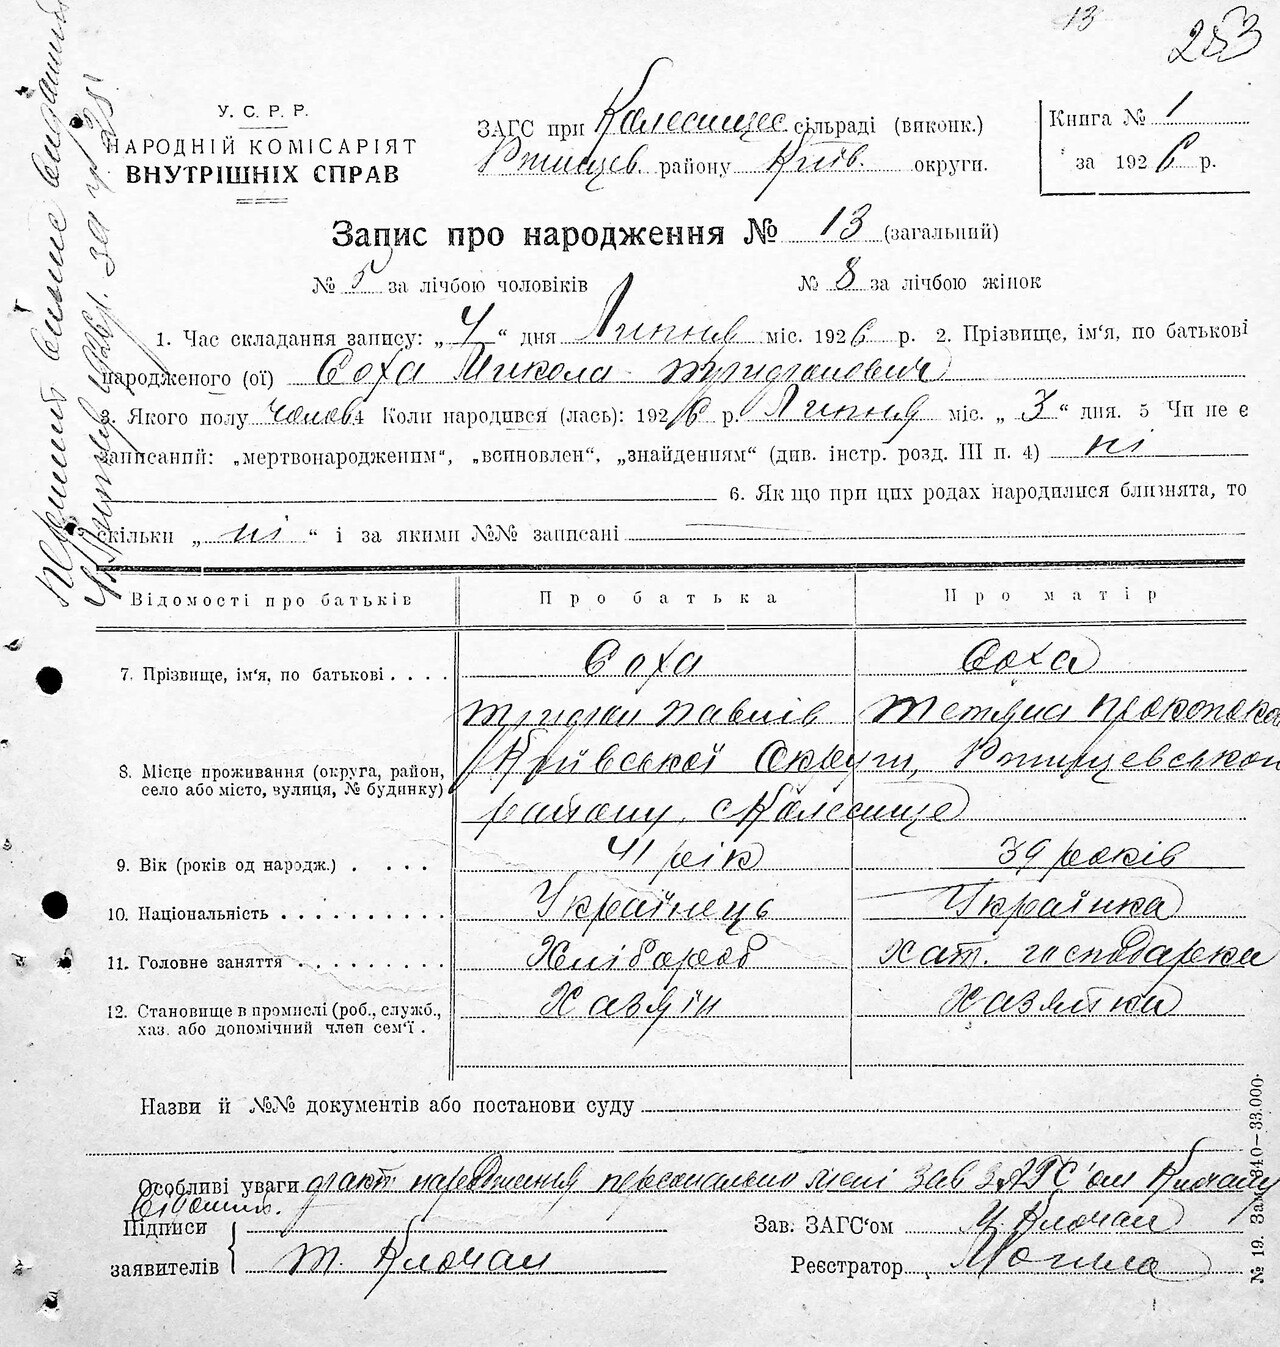 13
253
У. С. Р. Р.
НАРОДНІЙ КОМІСАРІЯТ
ВНУТРІШНІХ СПРАВ
ЗАГС при Колесищес. сільраді (виконк.)
Ржищев. району Київ. округи.
Книга № 1
за 1926 р.
Запис про народження № 13 (загальний)
№ 5 за лічбою чоловіків № 8 за лічбою жінок
1. Час складання запису: „ 4 “ дня Липня міс. 1926 р. 2. Прізвище, ім‘я, по батькові
народженого (ої) Соха Микола Трифонович
3. Якого полу чолов 4 Коли народився (лась): 1926 р. Липня міс. „ 3 “ дня. 5 Чи не є
записаний: „мертвонародженим“, „всиновлен“, „знайденням“ (див. інстр. розд. III п. 4) ні
6. Якщо при цих родах народилися близнята, то
скільки „ ні “ і за якими №№ записані
Відомості про батьків Про батька Про матір
7. Прізвище, ім‘я, по батькові . . . . Соха Соха
Трифон Павлів Тетяна
8. Місце проживання (округа, район, Київської Округи, Ржищевського
село або місто, вулиця, № будинку) району, с Колесище
9. Вік (років од народж.) . . . . 41 рік 39 років
10. Національність . . . . . . . . . . Українець Українка
11. Головне заняття . . . . . . . . . Хлібороб Хат. господарка
12. Становище в промислі (роб., служб., Хазяїн Хазяйка
хаз. або допомічний член сем‘ї .
Назви й №№ документів або постанови суду
Особливі уваги факт народження персонально мені зав ЗАГС‘ом Клочану
Підписи
заявителів Т. Клочан
Зав. ЗАГС‘ом Клочан
Реєстратор Могила
№ 19. Зам. 340—33.000.